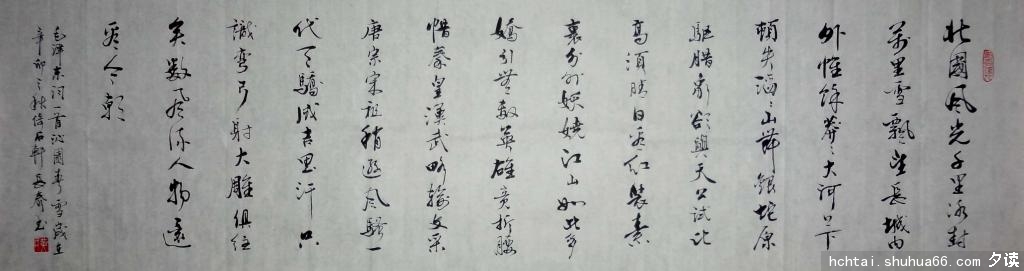 北國風光千里冰封
萬里雪飄望長城內
外惟餘莽〻大河上下
頓失滔〻山舞銀蛇原
馳臘象欲與天公試比
高須晴日看紅裝素
裹分外妖嬈江山如此多
嬌引無數英雄競折腰
惜秦皇漢武略輸文采
唐宗宋祖稍遜風騷一
代天驕成吉思汗只
識彎弓射大雕俱往
矣數風流人物還
看今朝
毛澤東詞一首沁園春雪歲在
辛卯之秋倚石軒長春書
hchtai.shuhua66.com
夕读